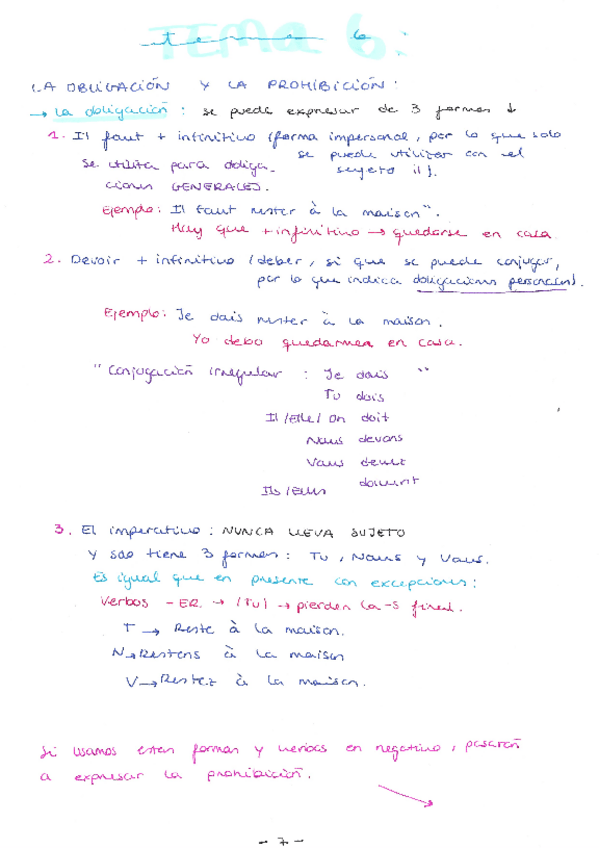 tema 6
TEMA 6:
LA OBLIGACIÓN Y LA PROHIBICIÓN:
→ La obligación: se puede expresar de 3 formas ↓
1. Il faut + infinitivo (forma impersonal, por lo que solo
se puede utilizar con el
se utiliza para obliga-
sujeto il).
ciones GENERALES).
Ejemplo: Il faut rester à la maison".
Hay que + infinitivo → quedarse en casa
2. Devoir + infinitivo (deber, si que se puede conjugar,
por lo que indica obligaciones personales).
Ejemplo: Je dois rester à la maison.
Yo debo quedarmea en casa.
"Conjugación irregular : Je dois "
Tu dois
Il/Elle/On doit
Nous devons
Vous devez
Ils/Elles doivent
3. El imperativo: NUNCA LLEVA SUJETO
Y solo tiene 3 formas: Tu, Nous y Vous.
Es igual que en presente con excepciones:
Verbos -ER. → (TU) → pierden la -s final.
T → Reste à la maison.
N → Restons à la maison
V → Restez à la maison.
Si usamos estas formas y verbos en negativo, pasarán
a expresar la prohibición.
- 7 -